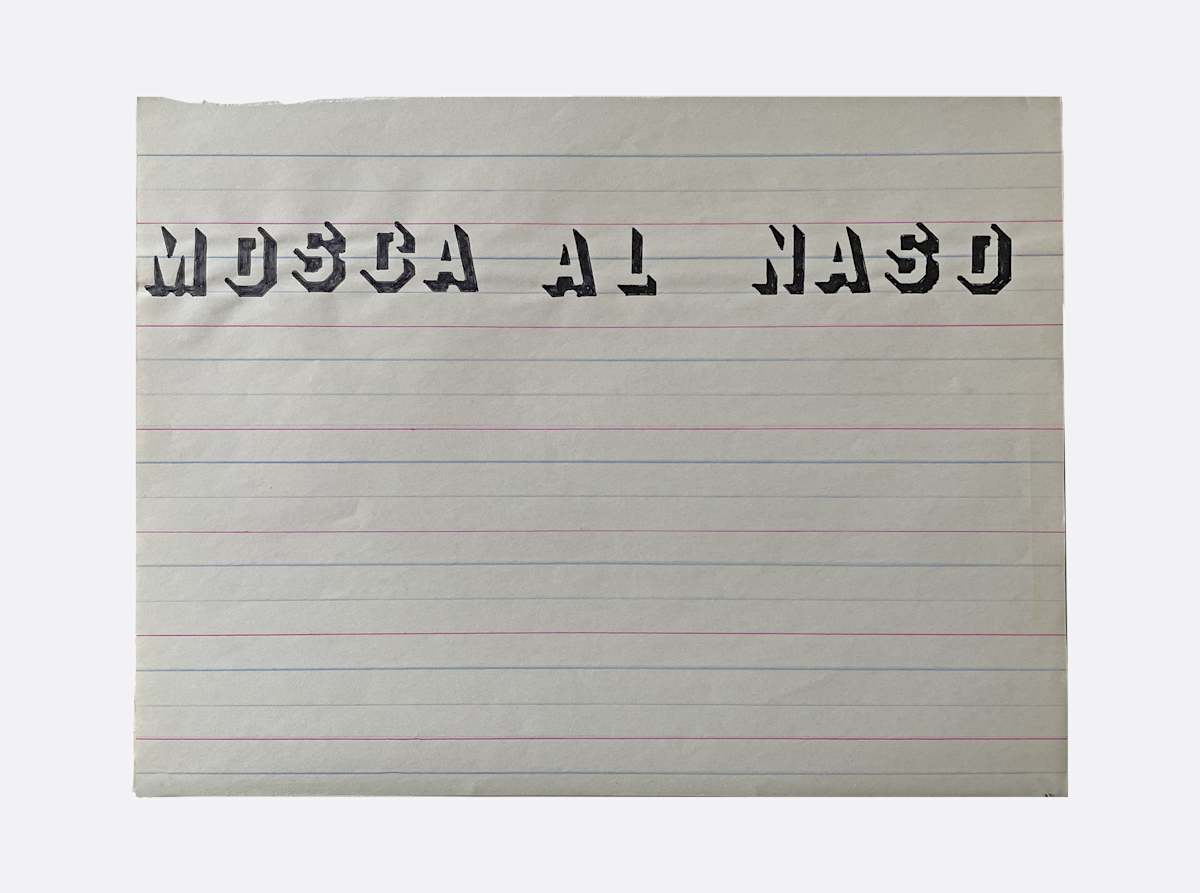 MOSCA AL NASO